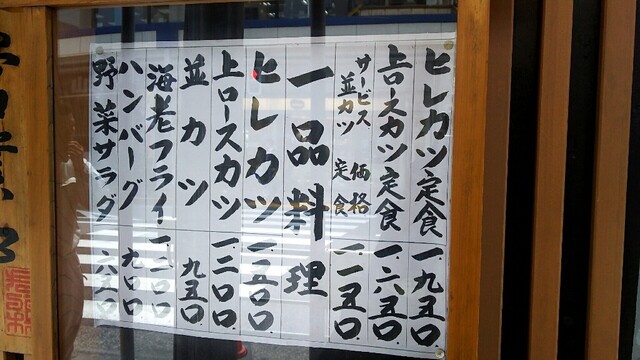 ヒレカツ定食 一、九五〇
上ロースカツ定食 一、六五〇
サービス価格
並カツ定食 一一五〇
一品料理
ヒレカツ 一、五〇〇
上ロースカツ 一、二〇〇
並カツ 九五〇
海老フライ 一、二〇〇
ハンバーグ 九〇〇
野菜サラダ 六五〇